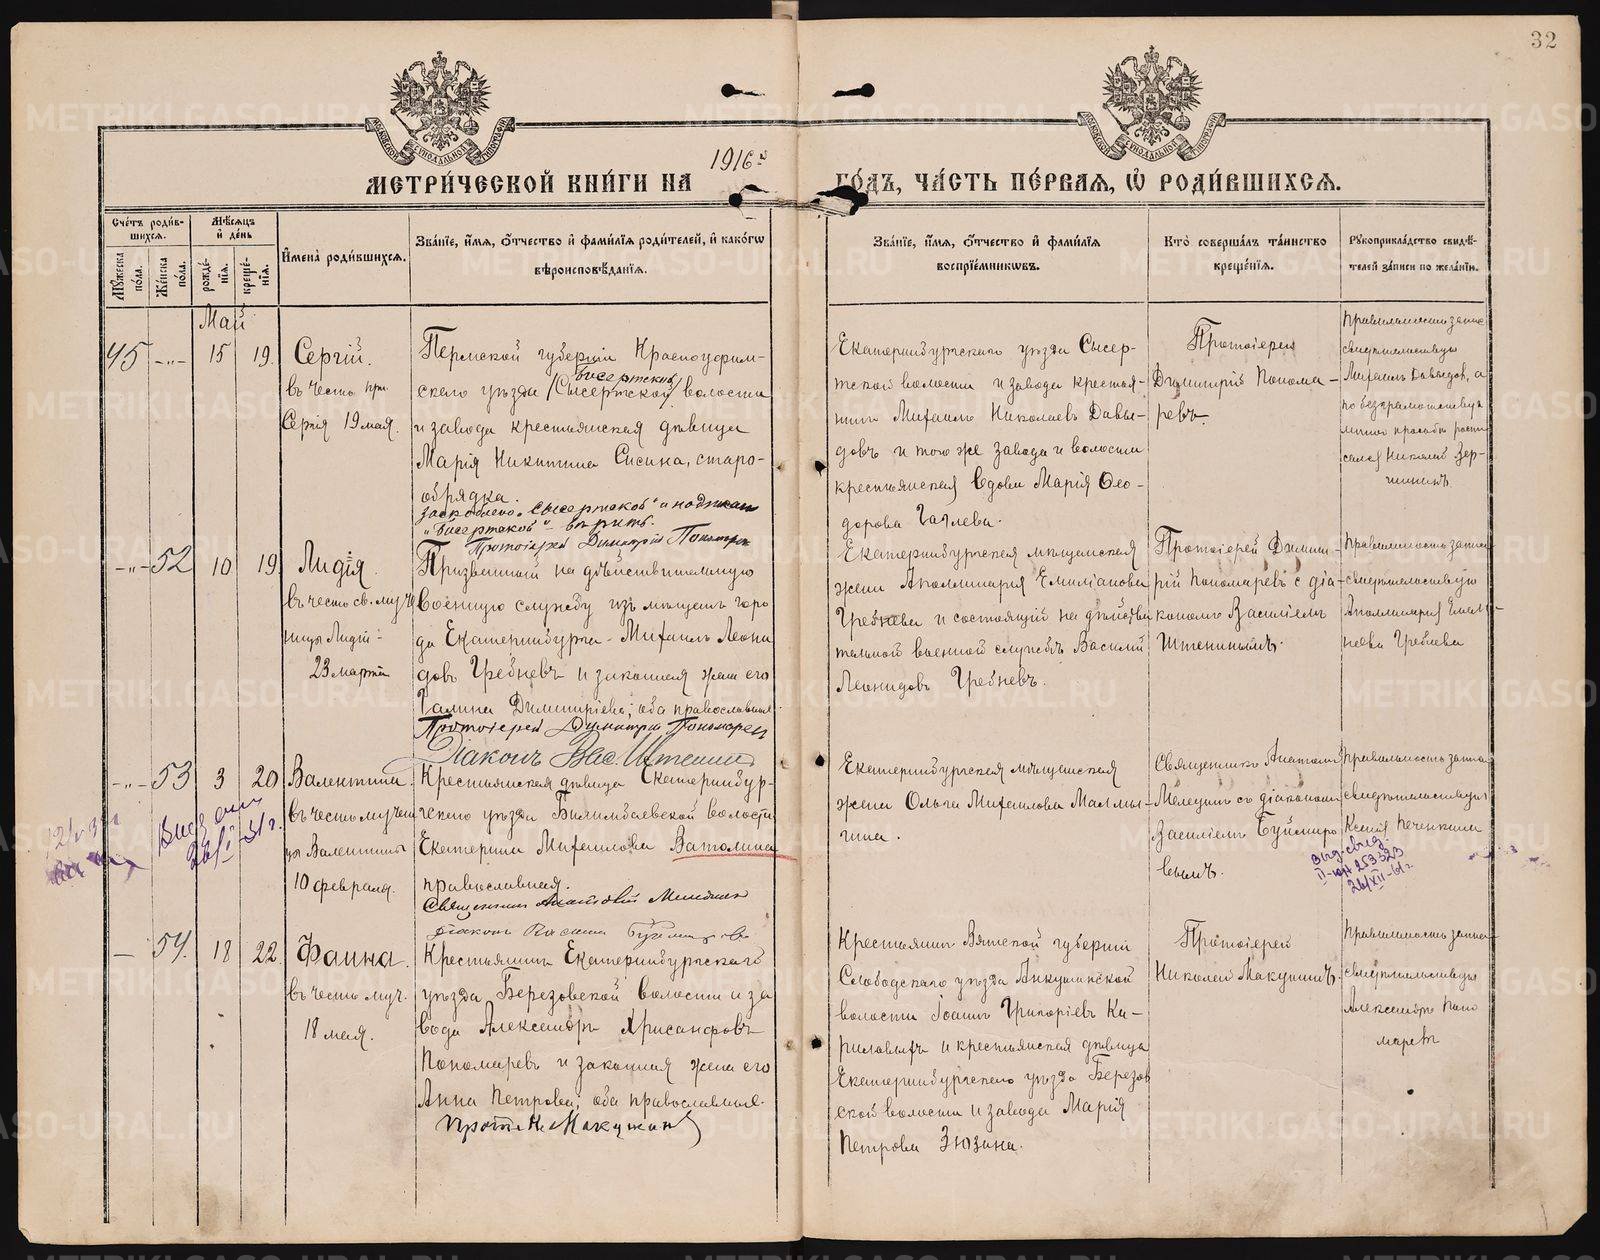 32
МОСКОВСКОЙ СѴНОДАЛЬНОЙ ТИПОГРАФІИ
МОСКОВСКОЙ СѴНОДАЛЬНОЙ ТИПОГРАФІИ
МЕТРИ́ЧЕСКОЙ КНИ́ГИ НА 1916й ГО́ДЪ, ЧА́СТЬ ПЕ́РВАѦ, Ѡ҆ РОДИ́ВШИХСѦ.
Сче́тъ роди́в-
шихсѧ.
Мѹ́жеска по́ла.
Же́нска по́ла.
Мѣ́сѧцъ
и҆ де́нь
рожде́-
нїѧ.
креще́-
нїѧ.
И҆мена̀ роди́вшихсѧ.
Зва́нїе, и҆́мѧ, ѻ҆́тчество и҆ фами́лїѧ роди́телей, и҆ како́гѡ
вѣроисповѣ́данїѧ.
Зва́нїе, и҆́мѧ, ѻ҆́тчество и҆ фами́лїѧ
воспрїе́мникѡвъ.
Кто̀ соверша́лъ та́инство
креще́нїѧ.
Рѹкоприкла́дство свидѣ́-
телей за́писи по жела́нїю.
Май
45 -"- 15 19.
Сергій.
въ честь пр.
Сергія 19 мая.
Пермской губерніи Красноуфим-
скаго уѣзда /Сысертской/ волости
Бисертской
и завода крестьянская дѣвица
Марія Никитина Сисина, старо-
обрядка.
заскоблено „Сысертской" и надписан.
„Бисертской" - вѣрить.
Протоіерей Димитрій Пономарев
Екатеринбургскаго уѣзда Сысер-
тской волости и завода крестья-
нинъ Михаилъ Николаевъ Давы-
довъ и того же завода и волости
крестьянская вдова Марія Ѳео-
дорова
Протоіерей
Димитрій Понома-
ревъ.
Правильность записи
свидѣтельствую
Михаилъ Давыдовъ, а
по безграмотству
личной просьбѣ распи
сался Николай
-"- 52 10 19.
Лидія.
въ честь св. муче
ницы Лидіи
23 марта
Призванный на дѣйствительную
военную службу изъ мѣщанъ горо
да Екатеринбурга Михаилъ Леони
довъ Гребневъ и законная жена его
Галина Димитріева; оба православные
Протоіерей Димитрій Пономарев
Діаконъ Вас. Иштенин
Екатеринбургская мѣщанская
жена Аполлинарія Емиліанова
Гребнева и состоящій на дѣйстви
тельной военной службѣ Василій
Леонидовъ Гребневъ.
Протоіерей Димит-
рій Пономаревъ с діа-
кономъ Василіемъ
Иштенинымъ.
Правильность записи
свидѣтельствую
Аполлинарія Емель-
янова Гребнева
-"- 53 3 20
Валентина.
въ честь мучени
цы Валентины
10 февраля.
Крестьянская дѣвица Екатеринбур-
гскаго уѣзда Билимбаевской волости
Екатерина Михаилова Ватолина
православная.
Священник Анатолій
Діаконъ Василій
Екатеринбургская мѣщанская
жена Ольга Михаилова Малы-
гина.
Священникъ Анатолій
съ діакономъ
Василіемъ Буймиро
вымъ.
Правильность записи
свидѣтельствую
Ксенія Печенкина
выд. свид.
II-ЮА 253323
26/XII-61г.
— 54. 18 22
Фаина.
въ честь муч.
18 мая.
Крестьянинъ Екатеринбургскаго
уѣзда Березовской волости и за
вода Александръ Хрисанфовъ
Пономаревъ и законная жена его
Анна Петрова; оба православные.
Прот. Н. Макушин
Крестьянинъ Вятской губерніи
Слободскаго уѣзда
волости Іоаннъ Григоріевъ Ки-
риловыхъ и крестьянская дѣвица
Екатеринбургскаго уѣзда Березов
ской волости и завода Марія
Петрова Зюзина.
Протоіерей
Николай Макушинъ.
Правильность записи
свидѣтельствую
Александръ Поно
маревъ